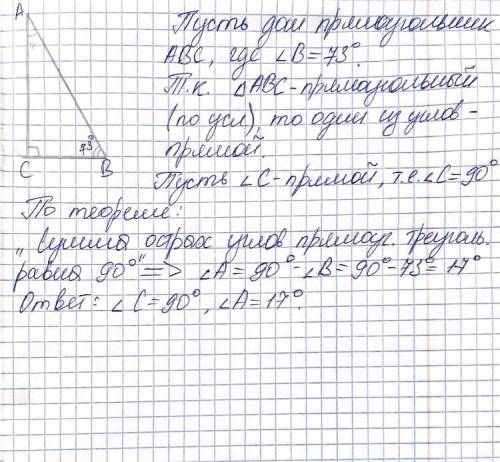 A
Пусть дан прямоугольник
ABC, где ∠B=73°.
Т.к. △ABC-прямоугольный
(по усл), то один из углов-
прямой.
73°
C B
Пусть ∠C-прямой, т.е.∠C=90°
По теореме:
"Сумма острых углов прямоуг. треуголь.
равна 90°" => ∠A=90°-∠B=90°-73°=17°
Ответ: ∠C=90°, ∠A=17°.